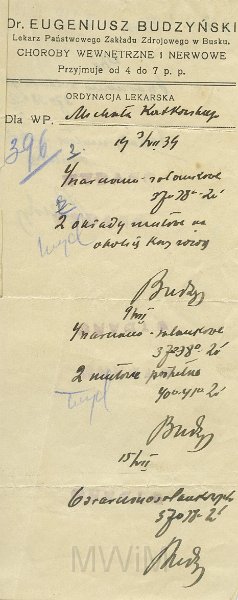 Dr. EUGENIUSZ BUDZYŃSKI
Lekarz Państwowego Zakładu Zdrojowego w Busku.
CHOROBY WEWNĘTRZNE I NERWOWE
Przyjmuje od 4 do 7 p. p.
ORDYNACJA LEKARSKA
Dla WP. Michała
396
19 3/VII 39
4 siarczano-solankowe
37°38° 20'
2 okłady mułowe na
okolicę krzyżową
Budzy
9/VII
4 siarczano-solankowe
37°38° 20'
2 mułowe
40°-41° 20'
Budzy
15/VII
6 siarczanosolankowych
37°38° 20'
Budzy
MWiM